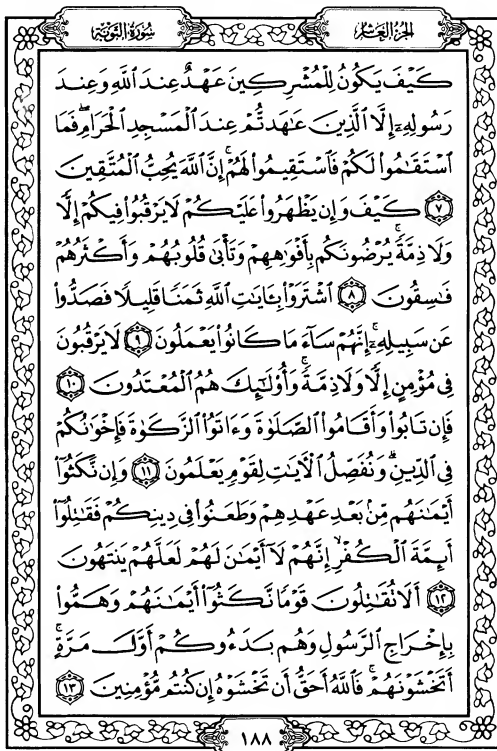 الجزء العاشر
سورة التوبة
كَيْفَ يَكُونُ لِلْمُشْرِكِينَ عَهْدٌ عِندَ اللَّهِ وَعِندَ
رَسُولِهِۦٓ إِلَّا الَّذِينَ عَٰهَدتُّمْ عِندَ الْمَسْجِدِ الْحَرَامِ ۖ فَمَا
اسْتَقَٰمُوا لَكُمْ فَاسْتَقِيمُوا لَهُمْ ۚ إِنَّ اللَّهَ يُحِبُّ الْمُتَّقِينَ
۝٧ كَيْفَ وَإِن يَظْهَرُوا عَلَيْكُمْ لَا يَرْقُبُوا فِيكُمْ إِلًّا
وَلَا ذِمَّةً ۚ يُرْضُونَكُم بِأَفْوَٰهِهِمْ وَتَأْبَىٰ قُلُوبُهُمْ وَأَكْثَرُهُمْ
فَٰسِقُونَ ۝٨ اشْتَرَوْا بِـَٔايَٰتِ اللَّهِ ثَمَنًا قَلِيلًا فَصَدُّوا
عَن سَبِيلِهِۦٓ ۚ إِنَّهُمْ سَآءَ مَا كَانُوا يَعْمَلُونَ ۝٩ لَا يَرْقُبُونَ
فِى مُؤْمِنٍ إِلًّا وَلَا ذِمَّةً ۚ وَأُو۟لَٰٓئِكَ هُمُ الْمُعْتَدُونَ ۝١٠
فَإِن تَابُوا وَأَقَامُوا الصَّلَوٰةَ وَءَاتَوُا الزَّكَوٰةَ فَإِخْوَٰنُكُمْ
فِى الدِّينِ ۗ وَنُفَصِّلُ الْءَايَٰتِ لِقَوْمٍ يَعْلَمُونَ ۝١١ وَإِن نَّكَثُوٓا
أَيْمَٰنَهُم مِّنۢ بَعْدِ عَهْدِهِمْ وَطَعَنُوا فِى دِينِكُمْ فَقَٰتِلُوٓا
أَئِمَّةَ الْكُفْرِ ۙ إِنَّهُمْ لَآ أَيْمَٰنَ لَهُمْ لَعَلَّهُمْ يَنتَهُونَ
۝١٢ أَلَا تُقَٰتِلُونَ قَوْمًا نَّكَثُوٓا أَيْمَٰنَهُمْ وَهَمُّوا
بِإِخْرَاجِ الرَّسُولِ وَهُم بَدَءُوكُمْ أَوَّلَ مَرَّةٍ ۚ
أَتَخْشَوْنَهُمْ ۚ فَاللَّهُ أَحَقُّ أَن تَخْشَوْهُ إِن كُنتُم مُّؤْمِنِينَ ۝١٣
١٨٨